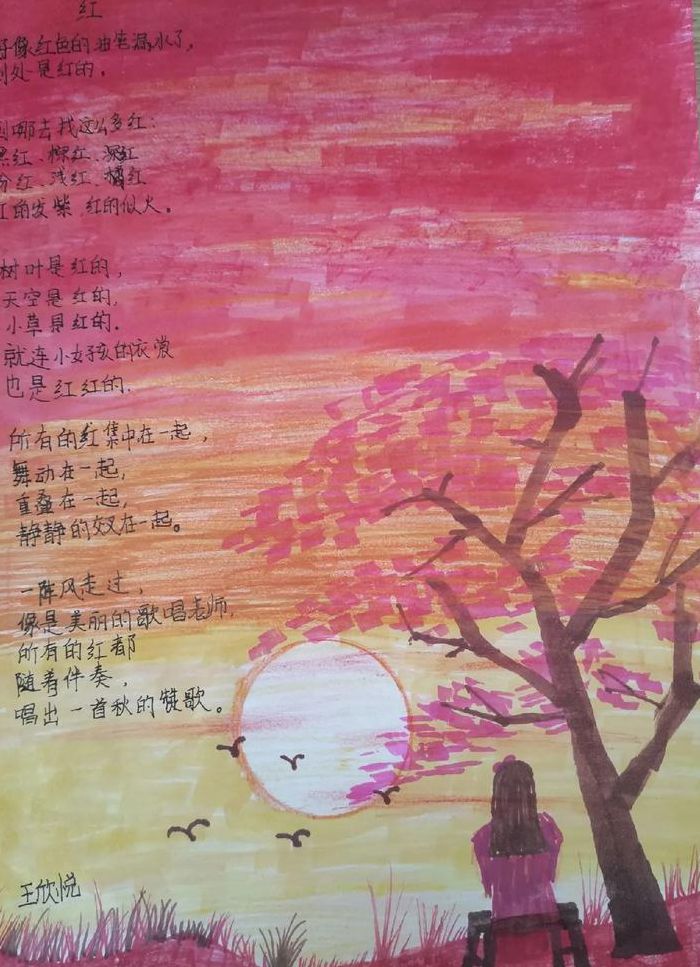 红
好像红色的油笔漏水了，
到处是红的。
到哪去找这么多红：
黑红、棕红、深红
粉红、浅红、橘红
红的发紫 红的似火。
树叶是红的，
天空是红的，
小草是红的。
就连小女孩的衣裳
也是红红的。
所有的红集中在一起，
舞动在一起，
重叠在一起，
静静的奴在一起。
一阵风走过，
像是美丽的歌唱老师，
所有的红都
随着伴奏，
唱出一首秋的赞歌。
王欣悦